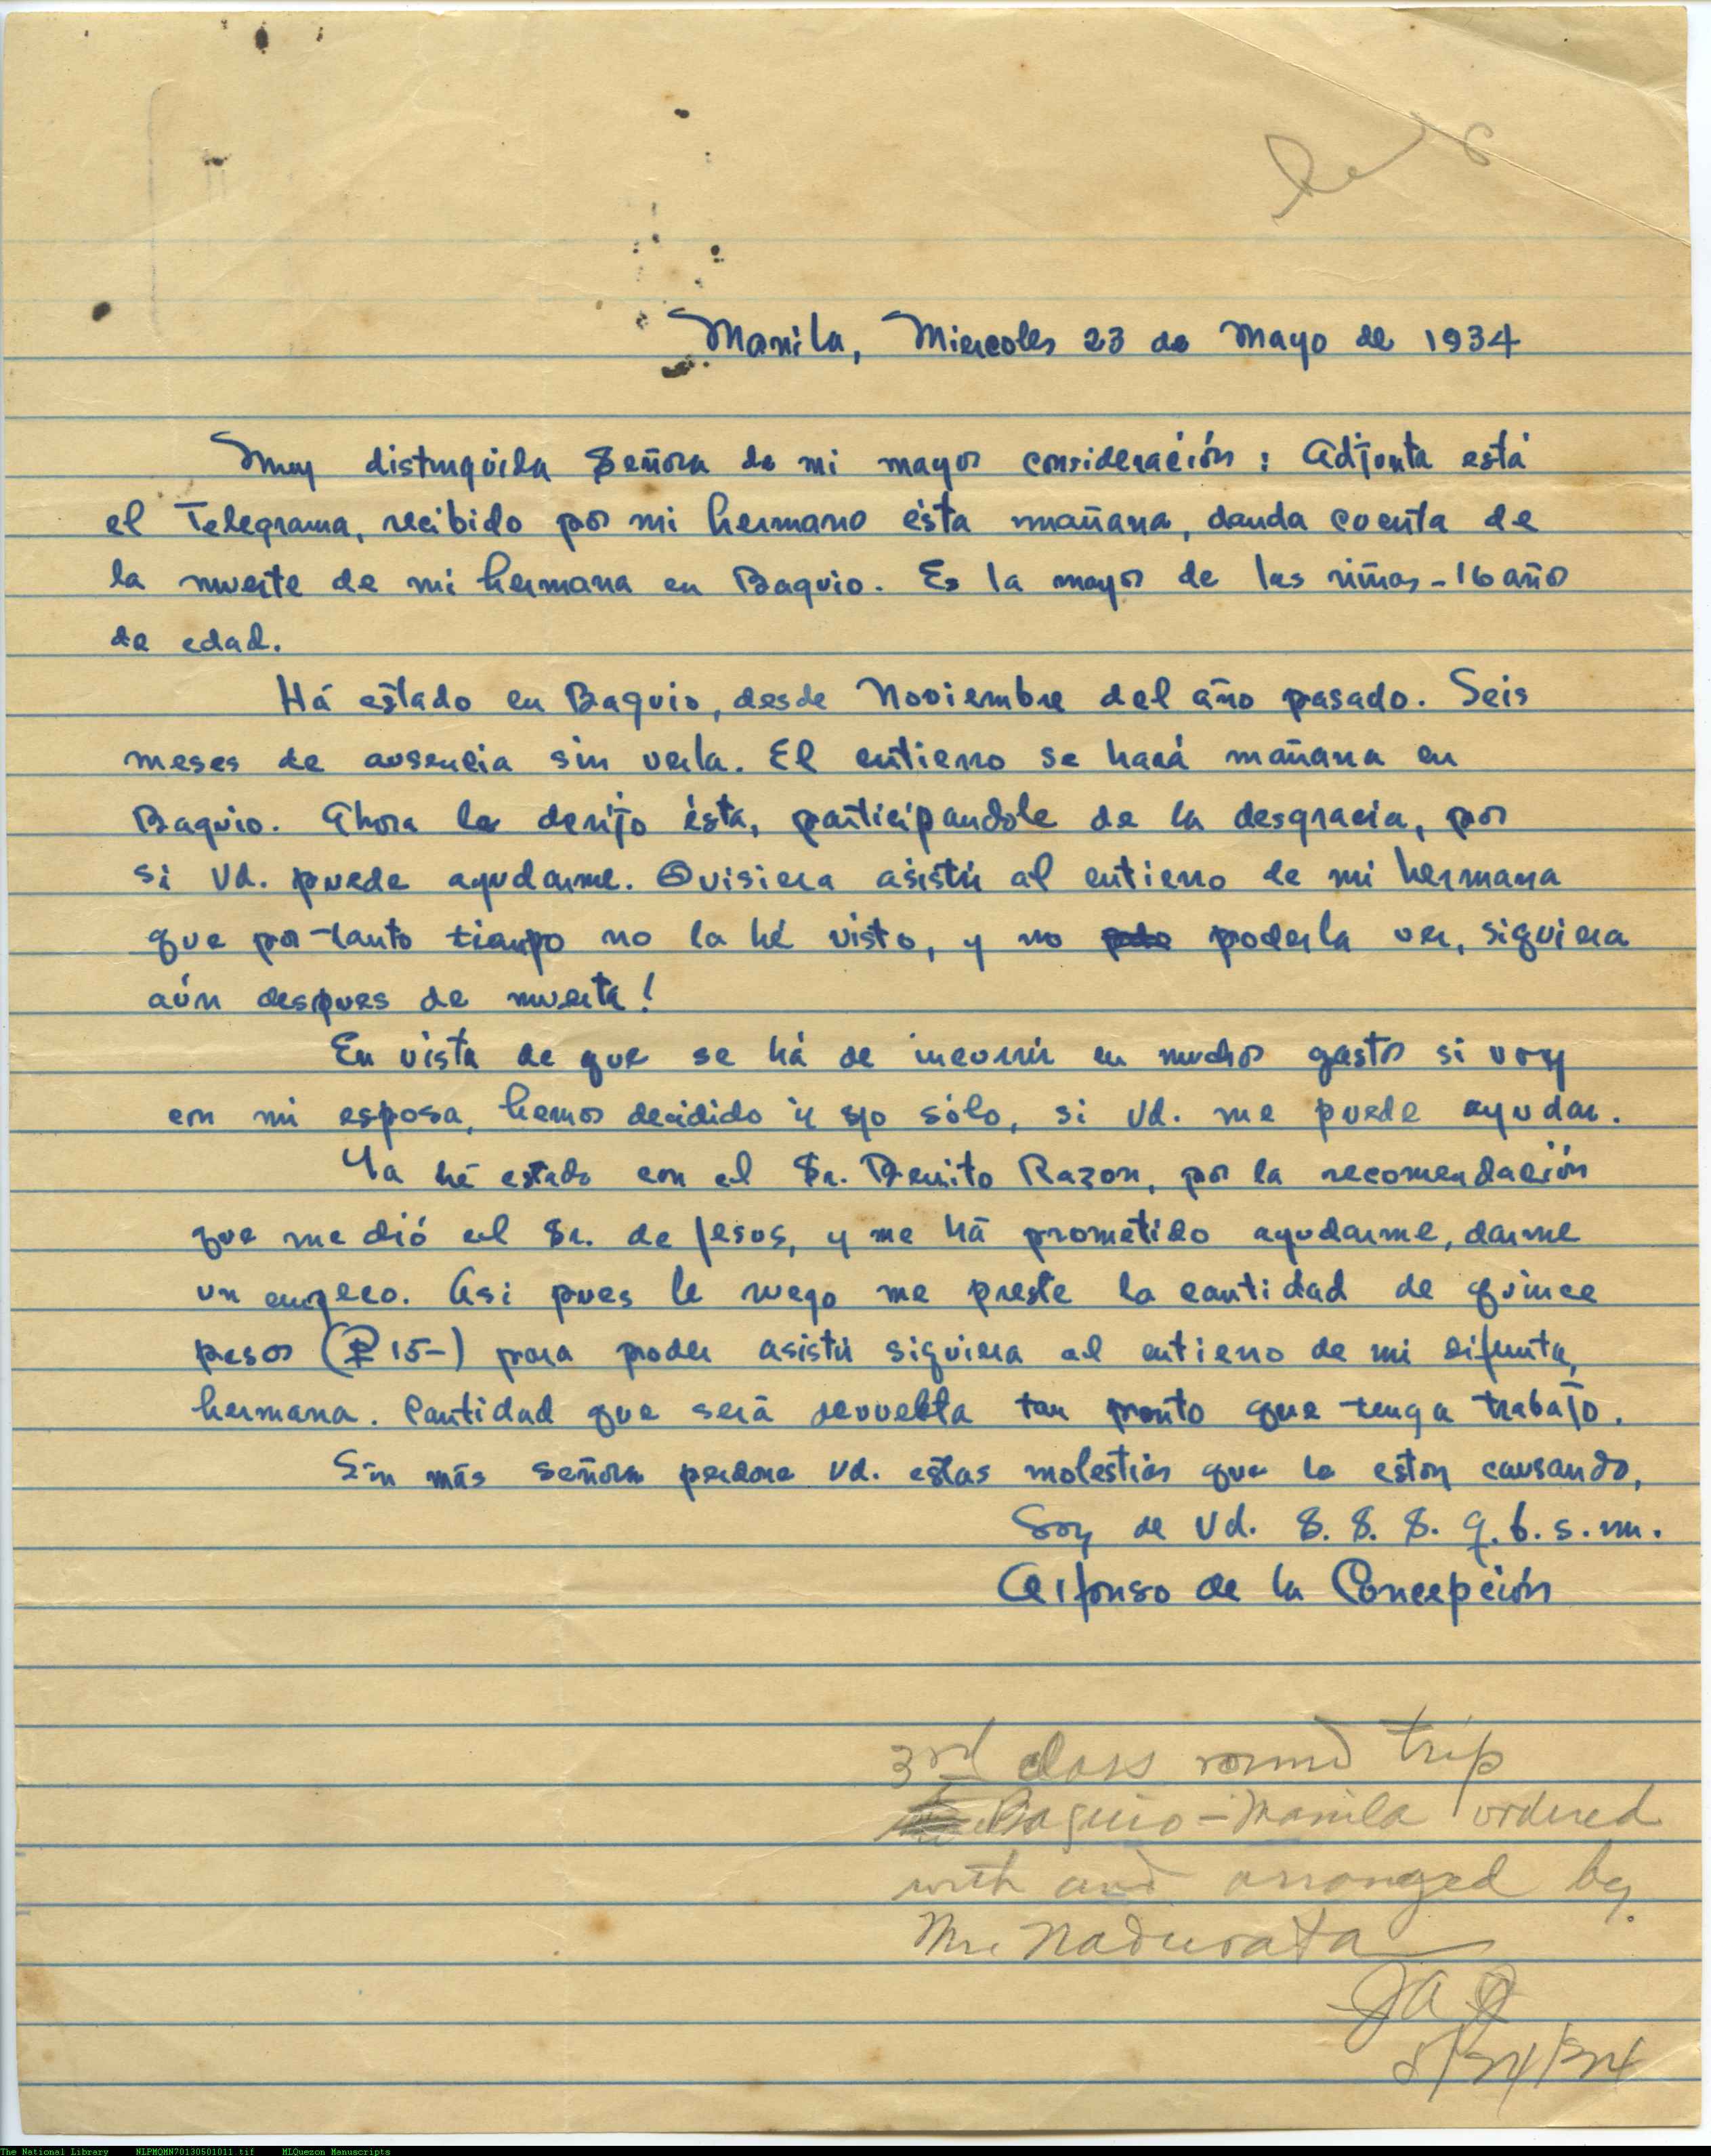 Manila, Miercoles 23 de Mayo de 1934
Muy distinguida Señora de mi mayor consideración: Adjunta está
el Telegrama, recibido por mi hermano ésta mañana, dando cuenta de
la muerte de mi hermana en Baguio. Es la mayor de las niñas - 16 años
de edad.
Há estado en Baguio, desde Noviembre del año pasado. Seis
meses de ausencia sin verla. El entierro se hará mañana en
Baguio. Ahora le dirijo ésta, participandole de la desgracia, por
si Vd. puede ayudarme. Quisiera asistir al entierro de mi hermana
que por tanto tiempo no la hé visto, y no poderla ver, siquiera
aún despues de muerta!
En vista de que se há de incurrir en muchos gastos si voy
con mi esposa, hemos decidido ir yo sólo, si Vd. me puede ayudar.
Ya hé estado con el Sr. Benito Razon, por la recomendación
que me dió el Sr. de Jesus, y me há prometido ayudarme, darme
un empleo. Asi pues le ruego me preste la cantidad de quince
pesos (₱ 15-) para poder asistir siquiera al entierro de mi difunta,
hermana. Cantidad que será devuelta tan pronto que tenga trabajo.
Sin más señora perdone Vd. estas molestias que le estoy causando,
Soy de Vd. S. S. S. q. b. s. m.
Alfonso de la Concepción
3rd class round trip
Baguio - Manila ordered
with and arranged by
Mr. Nadurata
JAQ
5/24/34
The National Library NLPMQMN70130501011.tif MLQuezon Manuscripts